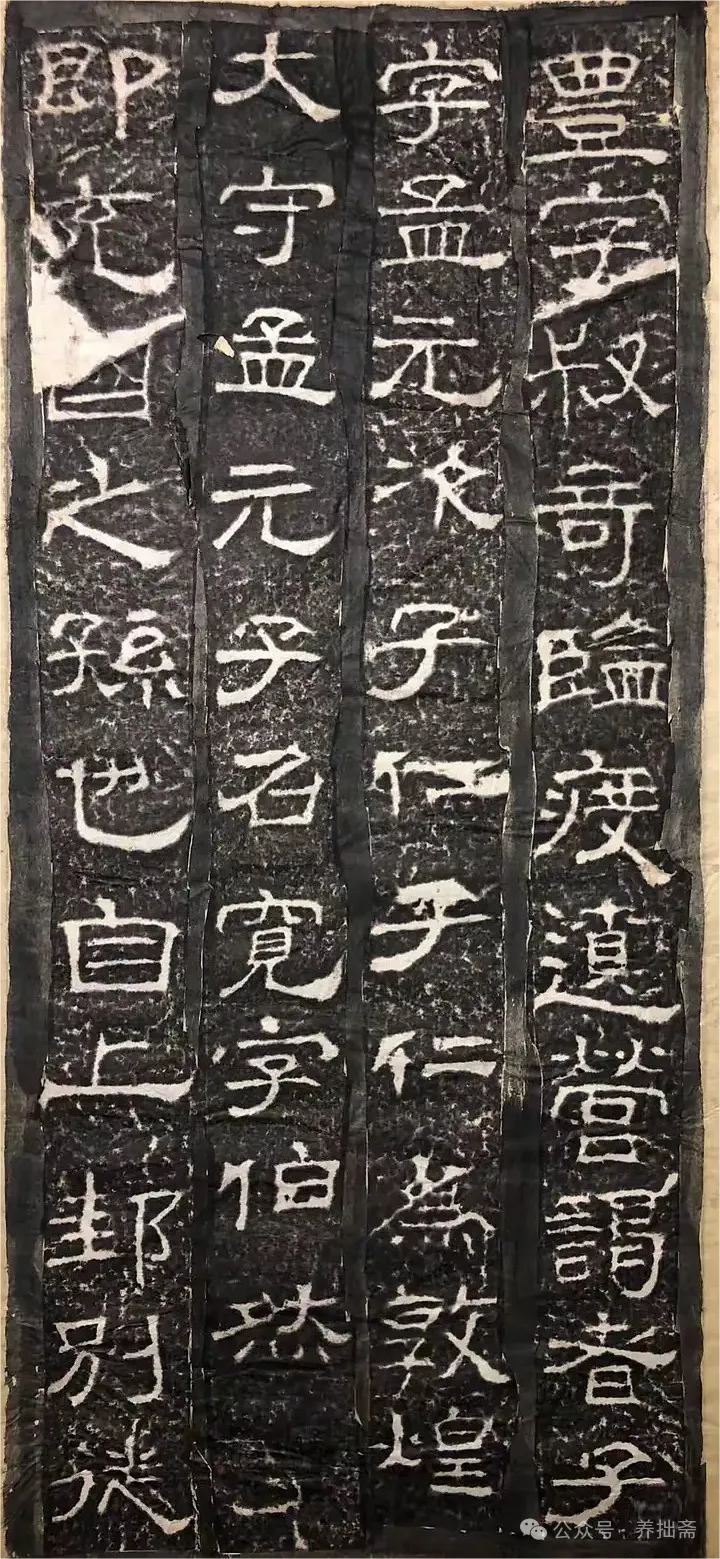 豐字叔奇監度遼營謁者子
字孟元次子仁子仁為敦煌
大守孟元子名寬字伯然
即充國之孫也自上邽別徙
公众号 · 养拙斋